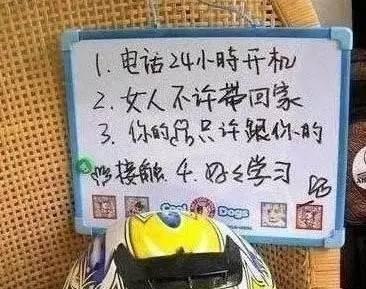 1. 电话24小時开机
2. 女人不许带回家
3. 你的 只许跟你的
接触 4. 好々学习
Cool Dogs